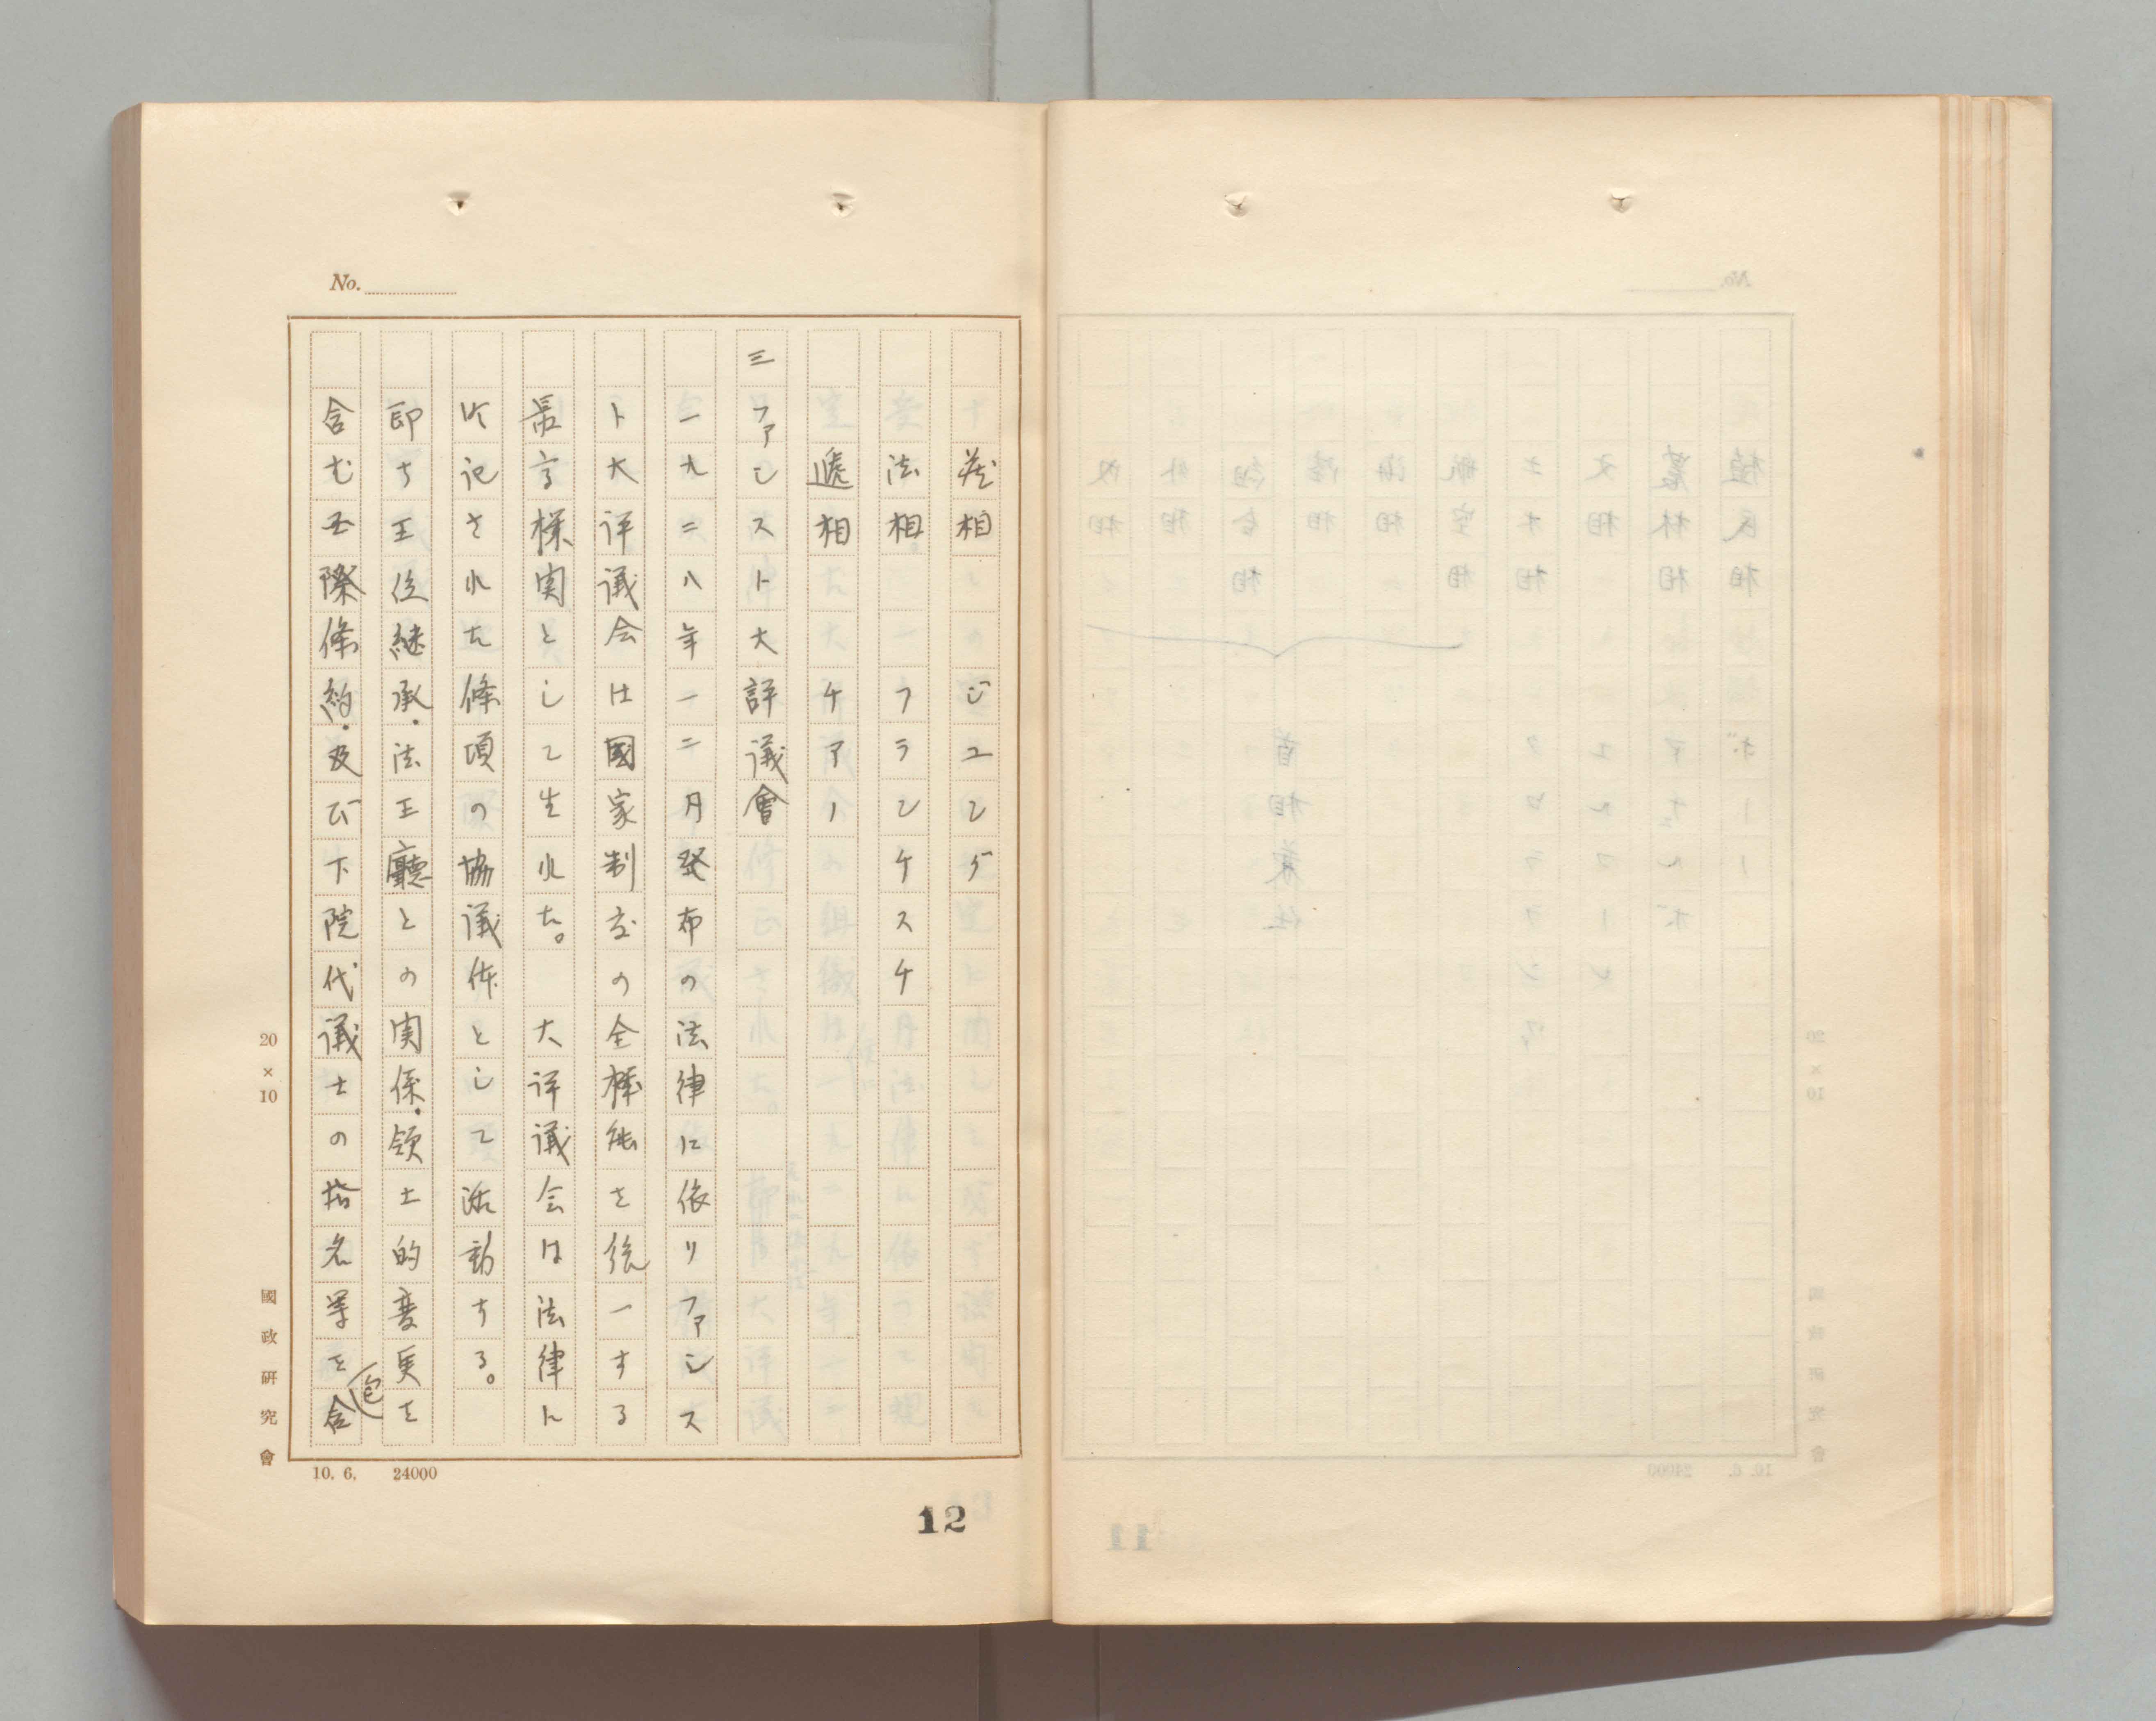 No.
蔵相　ジユング
法相　フランチスチ
逓相　チアノ
三 ファシスト大評議會
一九二八年一二月発布の法律に依りファシス
ト大評議会は國家制度の全機能を統一する
最高機関として生れた。　大評議会は法律に
記された條項の協議体として活動する。
即ち王位継承・法王廳との関係・領土的変更を
含む国際條約・及び下院代議士の指名等を含
包
20×10
國政研究會
10. 6. 24000
12